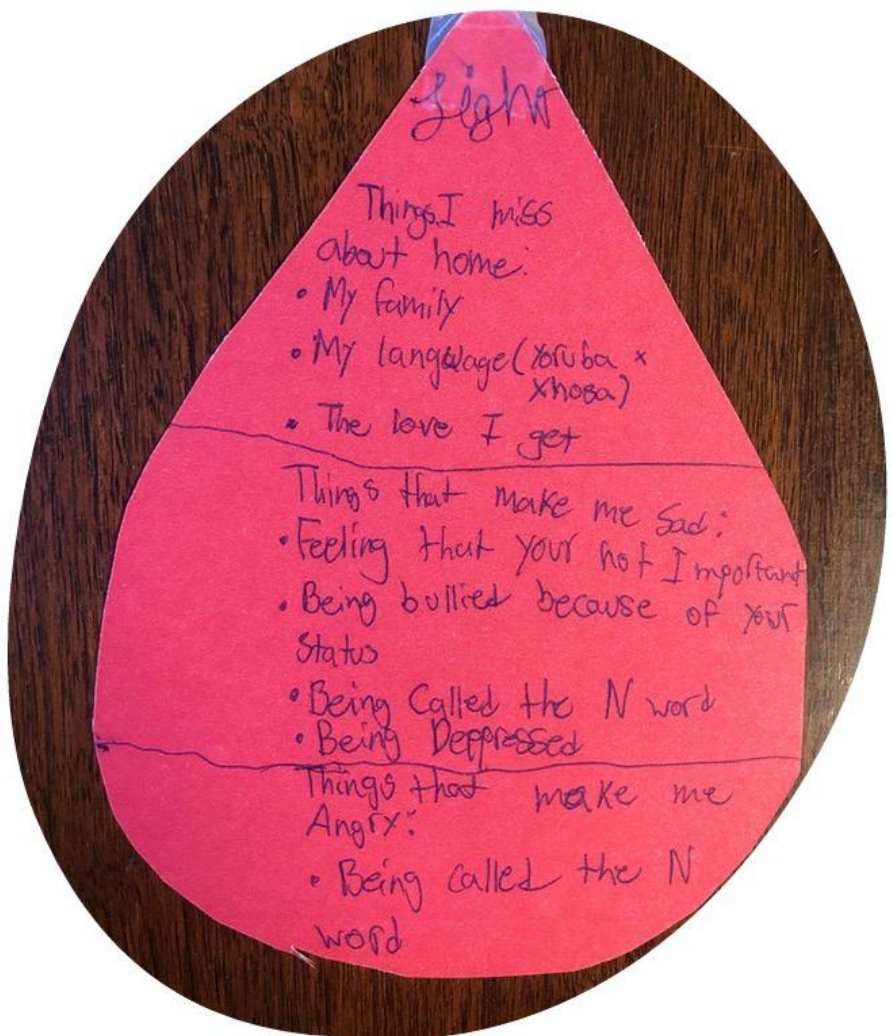 Light
Things I miss
about home:
• My family
• My language (Yoruba +
Xhosa)
• The love I get
Things that make me Sad:
• Feeling that your not Important
• Being bullied because of your
Status
• Being Called the N word
• Being Deppressed
Things that make me
Angry:
• Being called the N
word